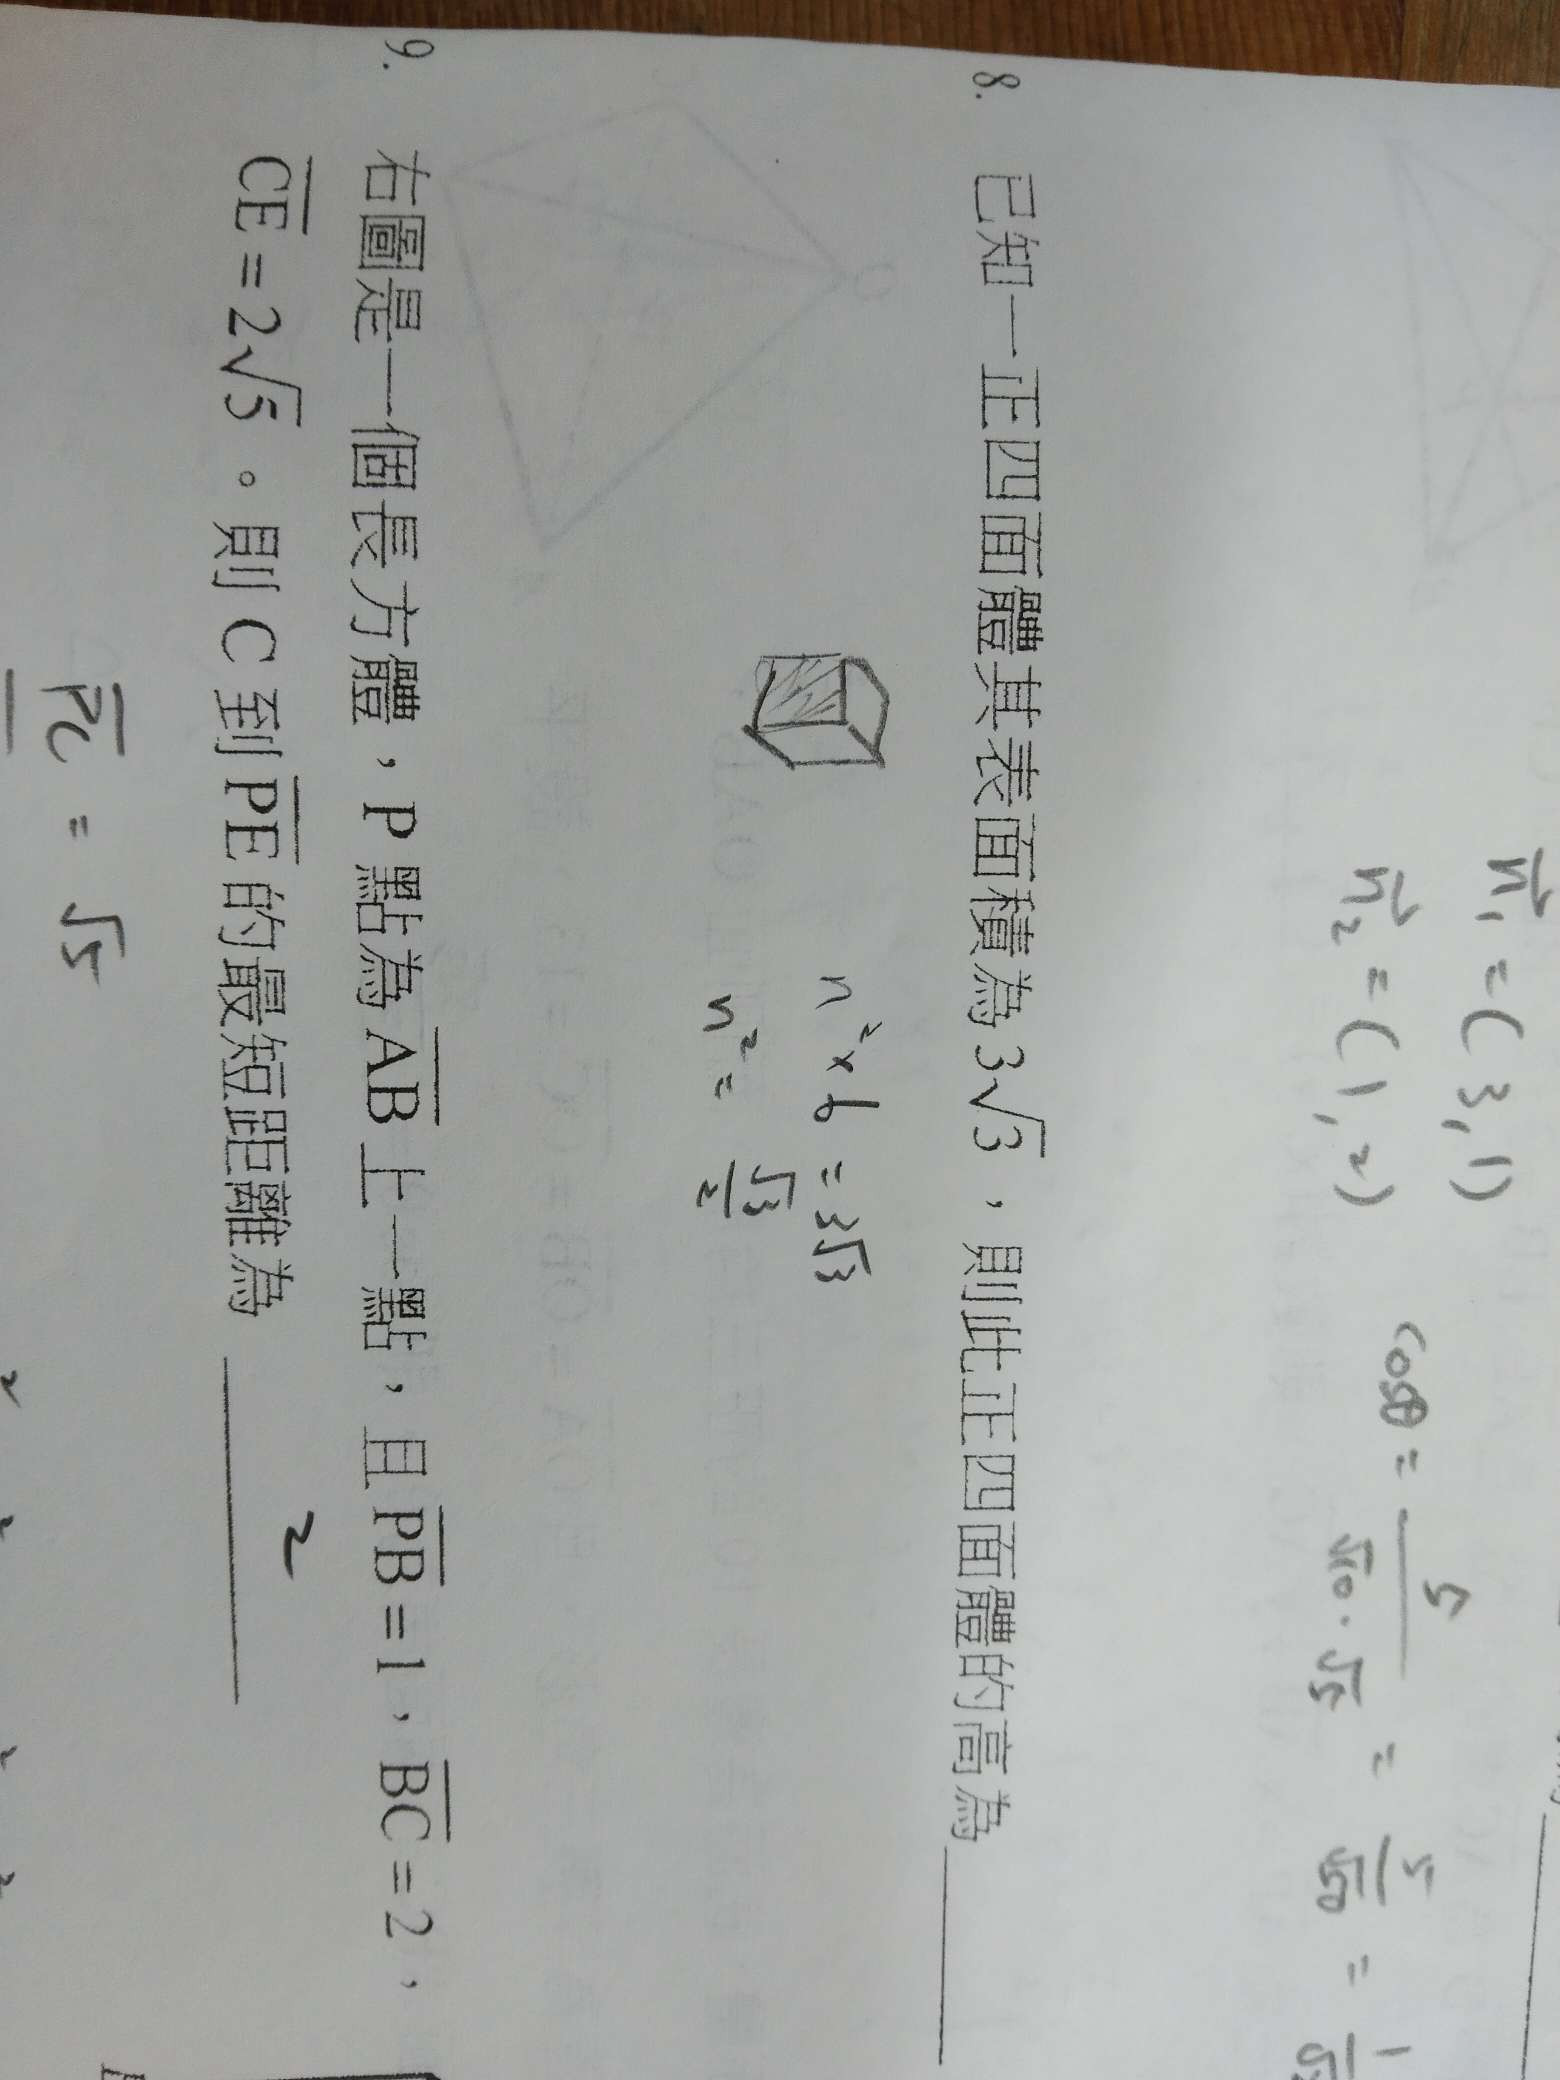 n₁ = (3,1)
n₂ = (1,2)
cosθ = 5/(√10·√5) = 5/√50 = 1/√2
8. 已知一正四面體其表面積為 3√3，則此正四面體的高為
n²×6 = 3√3
n² = √3/2
9. 右圖是一個長方體，P 點為 AB 上一點，且 PB = 1，BC = 2，
CE = 2√5。則 C 到 PE 的最短距離為 2
PC = √5